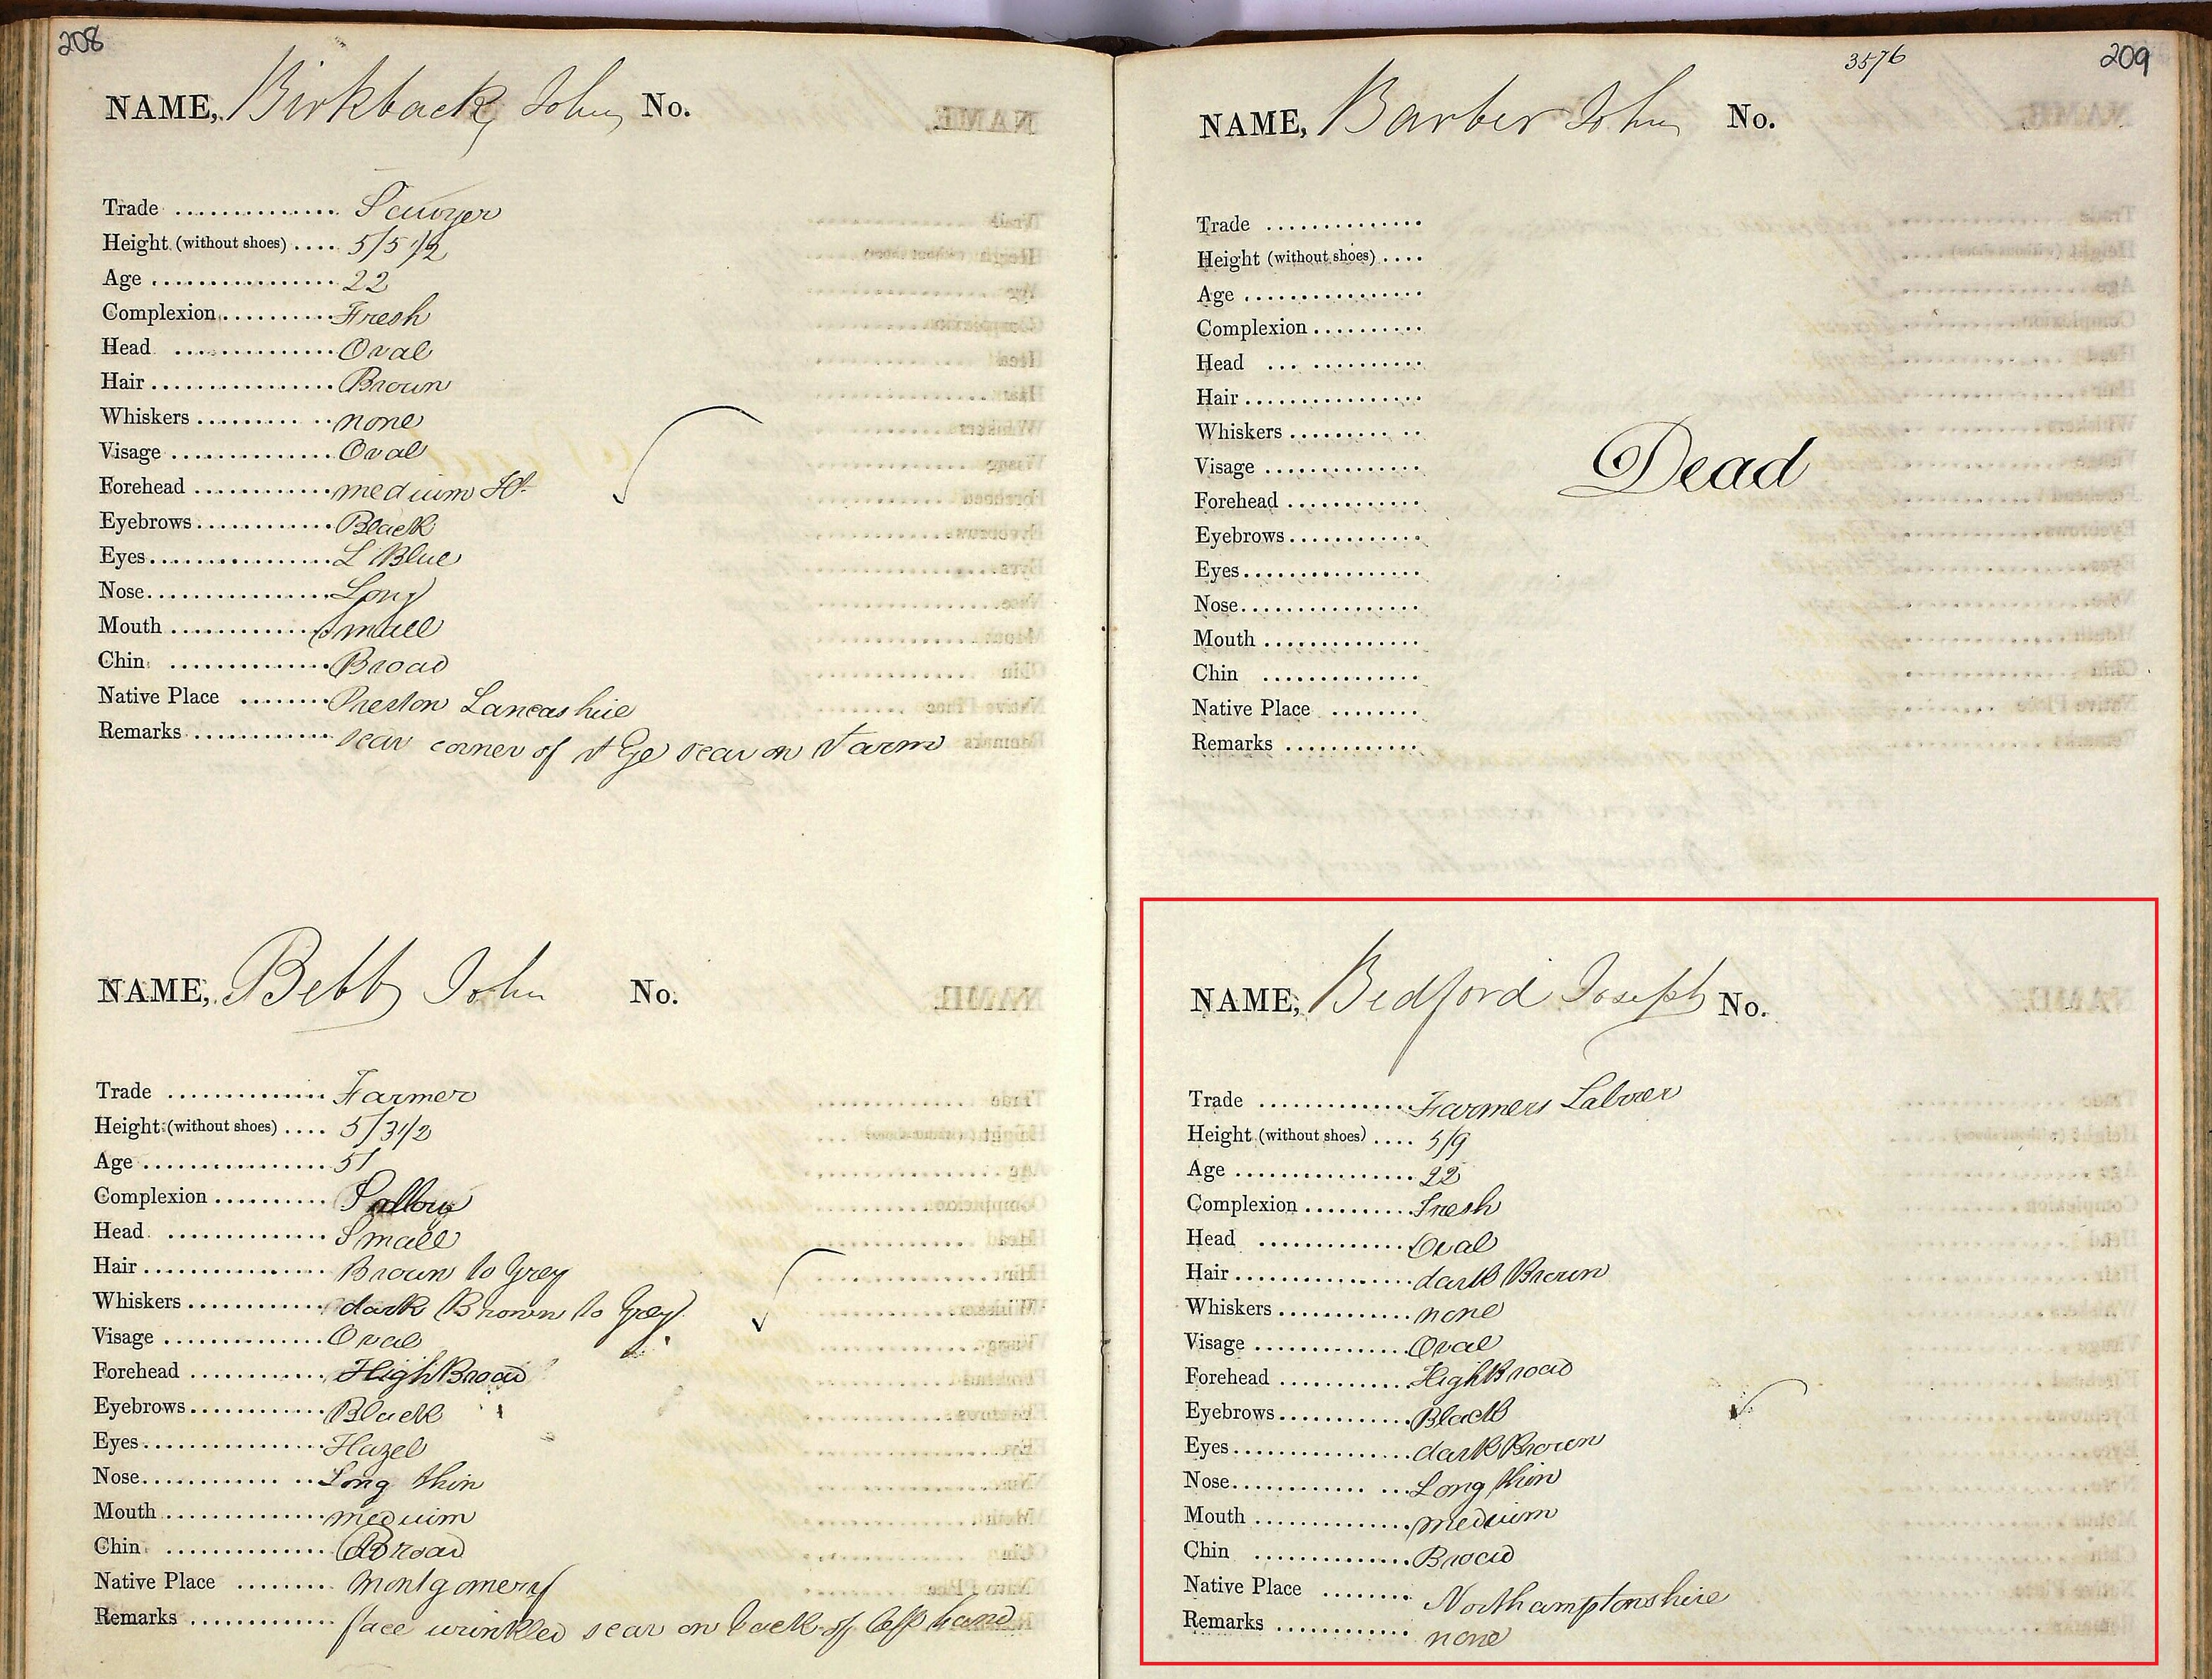 208
NAME, Birkback John No.
Trade .............. Sawyer
Height (without shoes) .... 5/5 1/2
Age ................ 22
Complexion .......... Fresh
Head .............. Oval
Hair ................ Brown
Whiskers ......... .. none
Visage .............. Oval
Forehead ............ medium Ht
Eyebrows ............ Black
Eyes ................ L Blue
Nose ................ Long
Mouth .............. Small
Chin .............. Broad
Native Place ........ Preston Lancashire
Remarks ............ scar corner of rt Eye scar on rt arm
NAME, Bebb John No.
Trade .............. Farmer
Height (without shoes) .... 5/3 1/2
Age ................ 51
Complexion .......... Sallow
Head .............. Small
Hair ................ Brown to Grey
Whiskers ............ dark Brown to Grey
Visage .............. Oval
Forehead ............ High Broad
Eyebrows ............ Black
Eyes ................ Hazel
Nose ........... .. Long thin
Mouth .............. medium
Chin .............. Broad
Native Place ........ Montgomery
Remarks ............ face wrinkled scar on back of left hand
3576 209
NAME, Barber John No.
Trade ..............
Height (without shoes) ....
Age ................
Complexion ..........
Head ... ..........
Hair ................
Whiskers ......... ..
Visage ..............
Dead
Forehead ............
Eyebrows ............
Eyes ................
Nose ................
Mouth ..............
Chin ..............
Native Place ........
Remarks ............
NAME, Bedford Joseph No.
Trade .............. Farmers Labrer
Height (without shoes) .... 5/9
Age ................ 22
Complexion .......... Fresh
Head .............. Oval
Hair ................ dark Brown
Whiskers ............ none
Visage .............. Oval
Forehead ............ High Broad
Eyebrows ............ Black
Eyes ................ dark Brown
Nose ........... ... Long thin
Mouth .............. medium
Chin .............. Broad
Native Place ........ Northamptonshire
Remarks ............ none